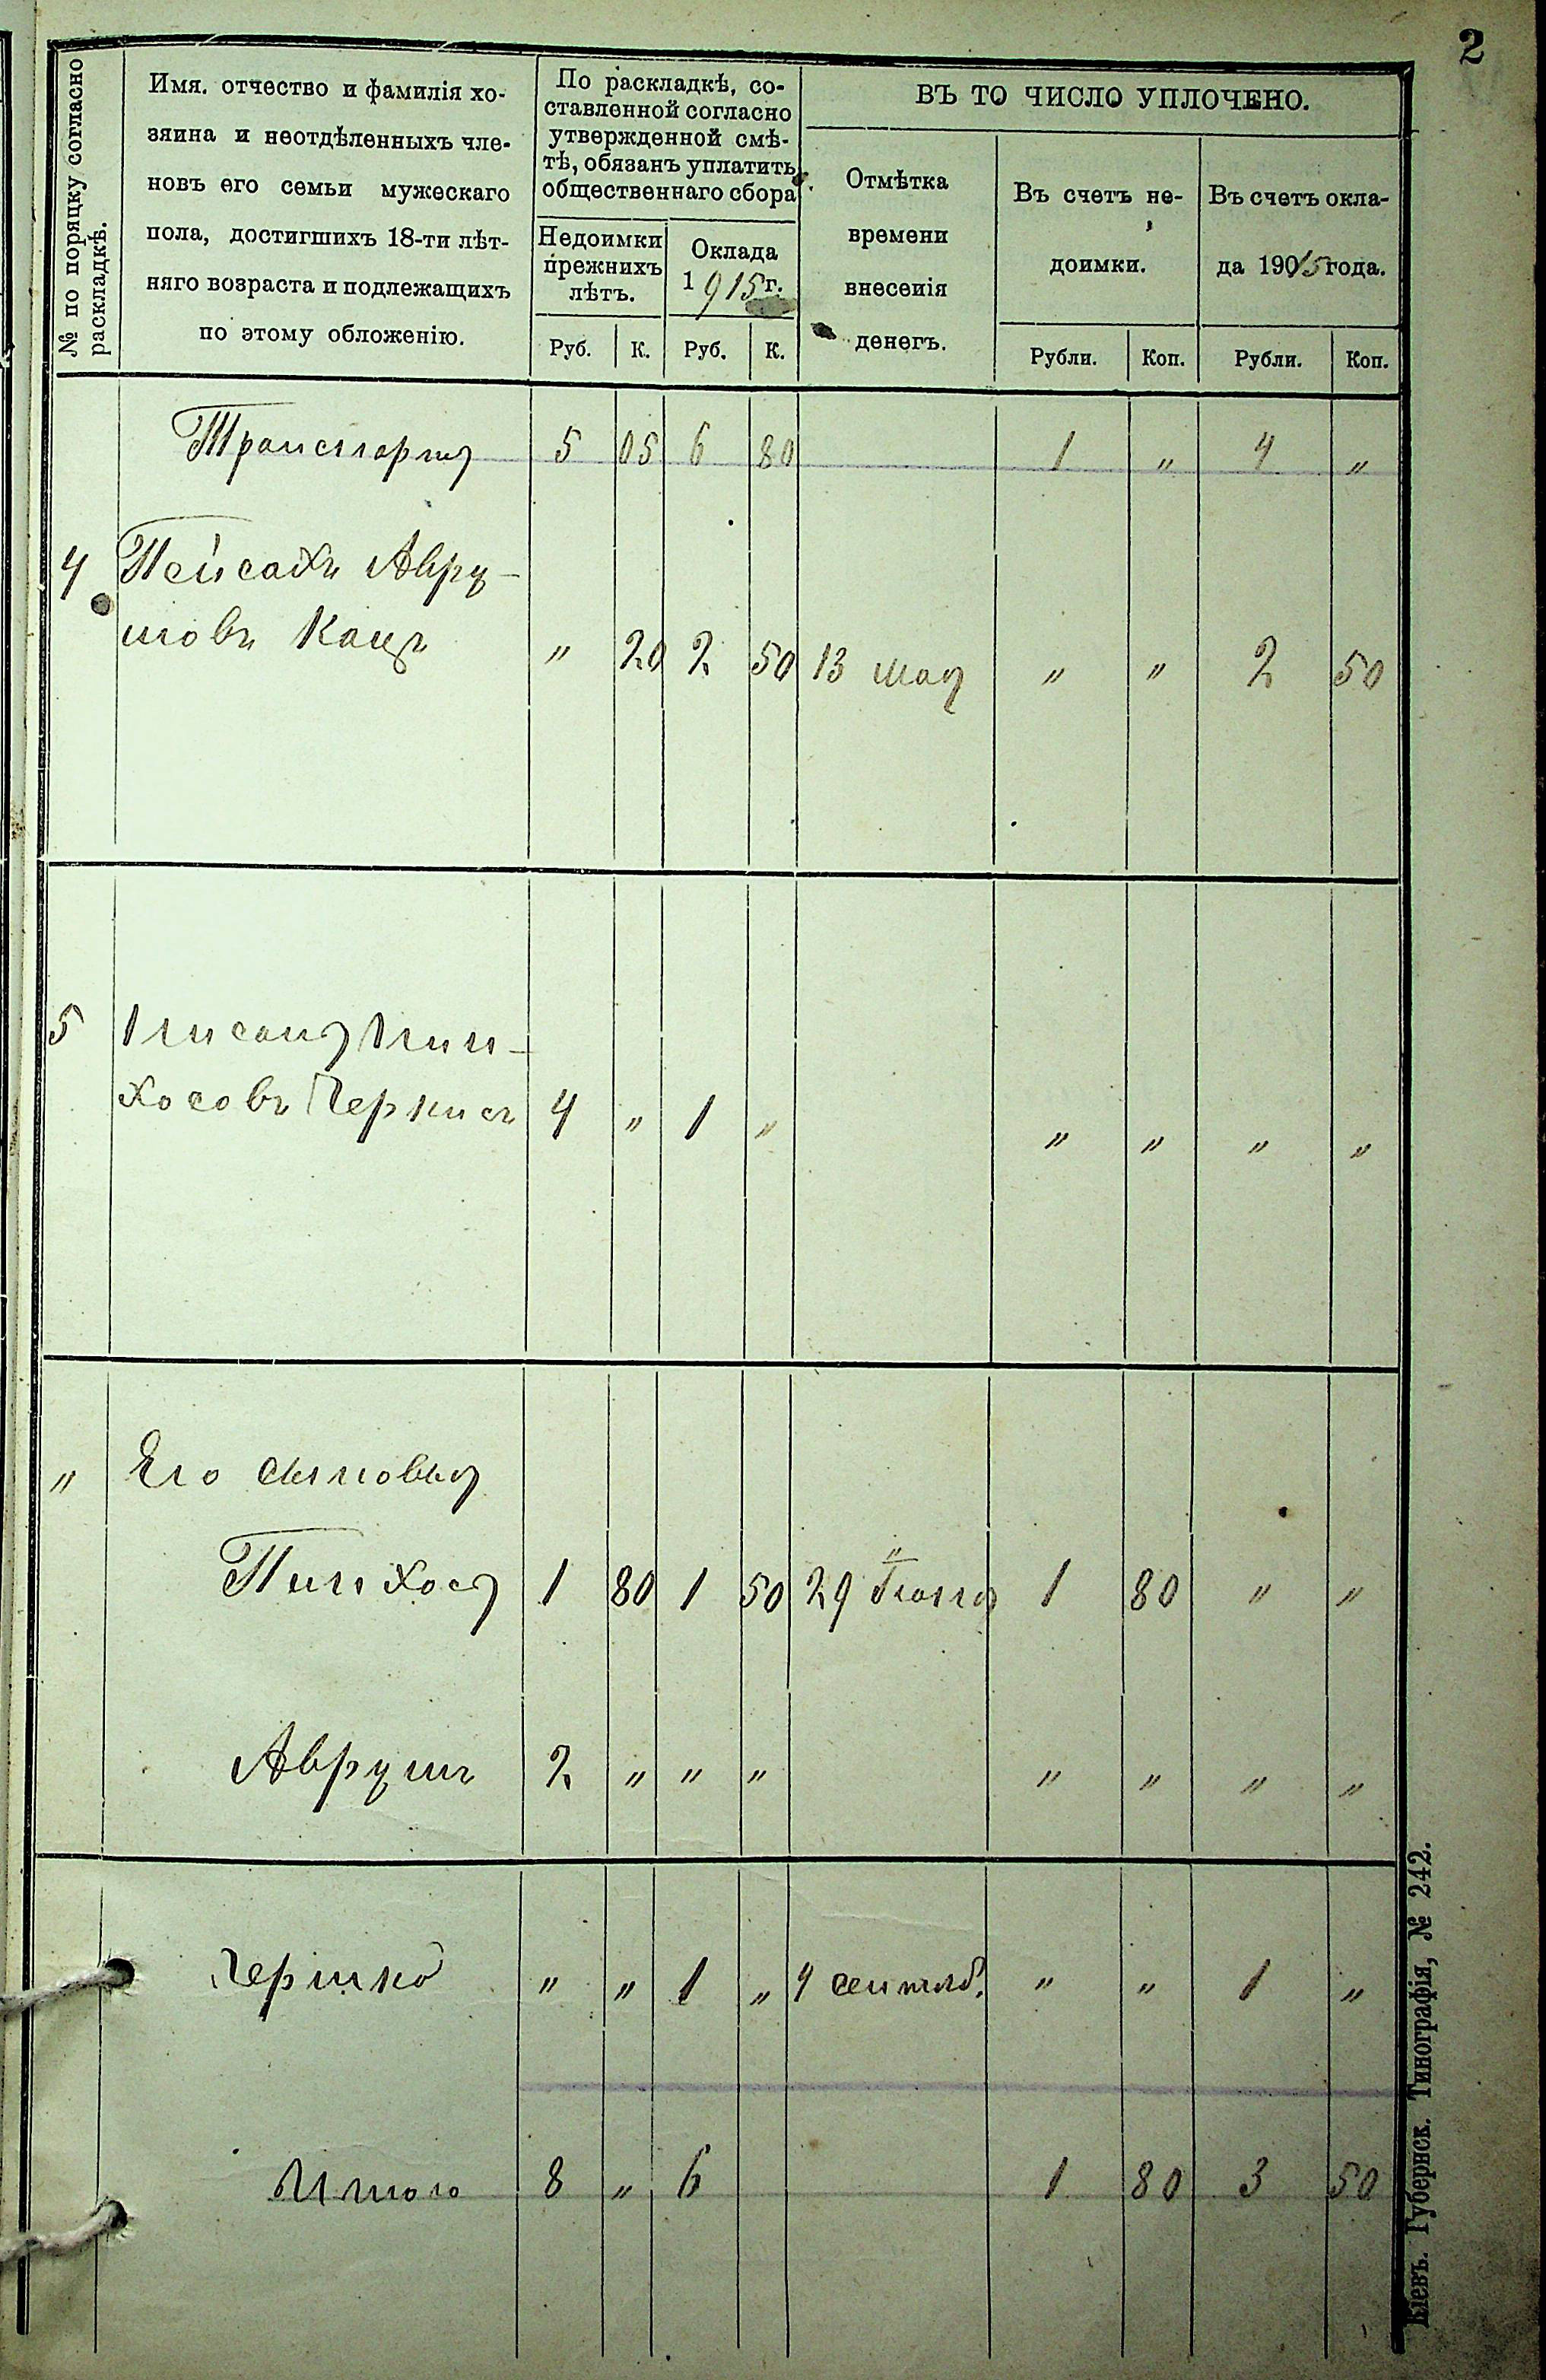 2
№ по поряцку согласно раскладкѣ.
Имя. отчество и фамилія хо-
зяина и неотдѣленныхъ чле-
новъ его семьи мужескаго
пола, достигшихъ 18-ти лѣт-
няго возраста и подлежащихъ
по этому обложенію.
По раскладкѣ, со-
ставленной согласно
утвержденной смѣ-
тѣ, обязанъ уплатить
общественнаго сбора
Недоимки
прежнихъ
лѣтъ.
Оклада
1915 г.
Руб. К. Руб. К.
ВЪ ТО ЧИСЛО УПЛОЧЕНО.
Отмѣтка
времени
внесенія
денегъ.
Въ счетъ не-
доимки.
Въ счетъ окла-
да 19015 года.
Рубли. Коп. Рубли. Коп.
Транспортъ 5 05 6 80 1 " 4 "
4 Пейсахъ Авру-
мовъ Кацъ " 20 2 50 13 мая " " 2 50
5 Пин-
хосовъ Черкисъ 4 " 1 " " " " "
" Его сыновья
Пинхосъ 1 80 1 50 29 1 80 " "
Аврумъ 2 " " " " " " "
Гершко " " 1 " 4 сентяб. " " 1 "
Итого 8 " 6 1 80 3 50
Кіевъ. Губернск. Типографія, № 242.